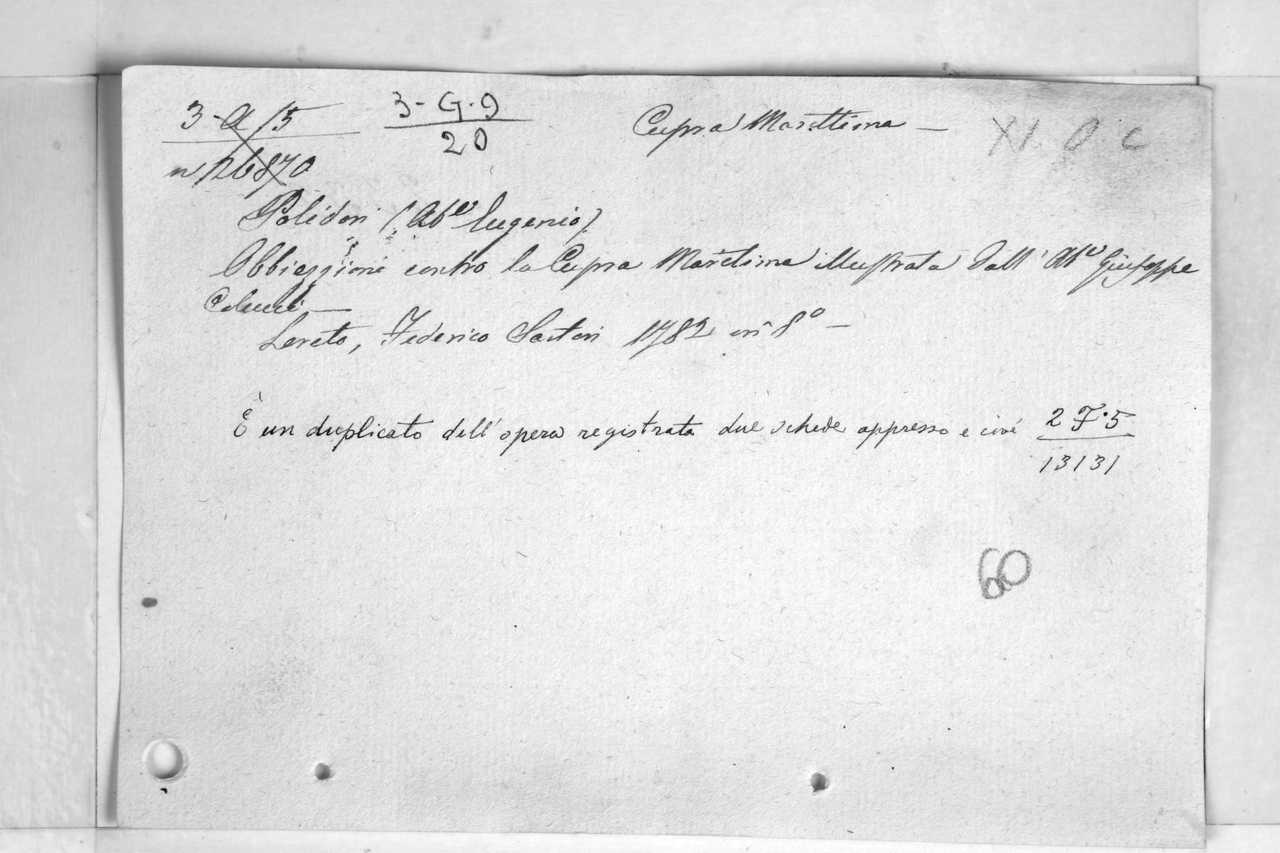 3-A/5 3-G.9 Cupra Marittima — XI. O. C
n 126870 20
Polidori (Ab.e Eugenio)
Obbiezzioni contro la Cupra Marittima illustrata dall' Ab.e Giuseppe
Colucci —
Loreto, Federico Sartori 1782 in 8° —
È un duplicato dell'opera registrata due schede appresso e cioè 2 F.5
13131
60